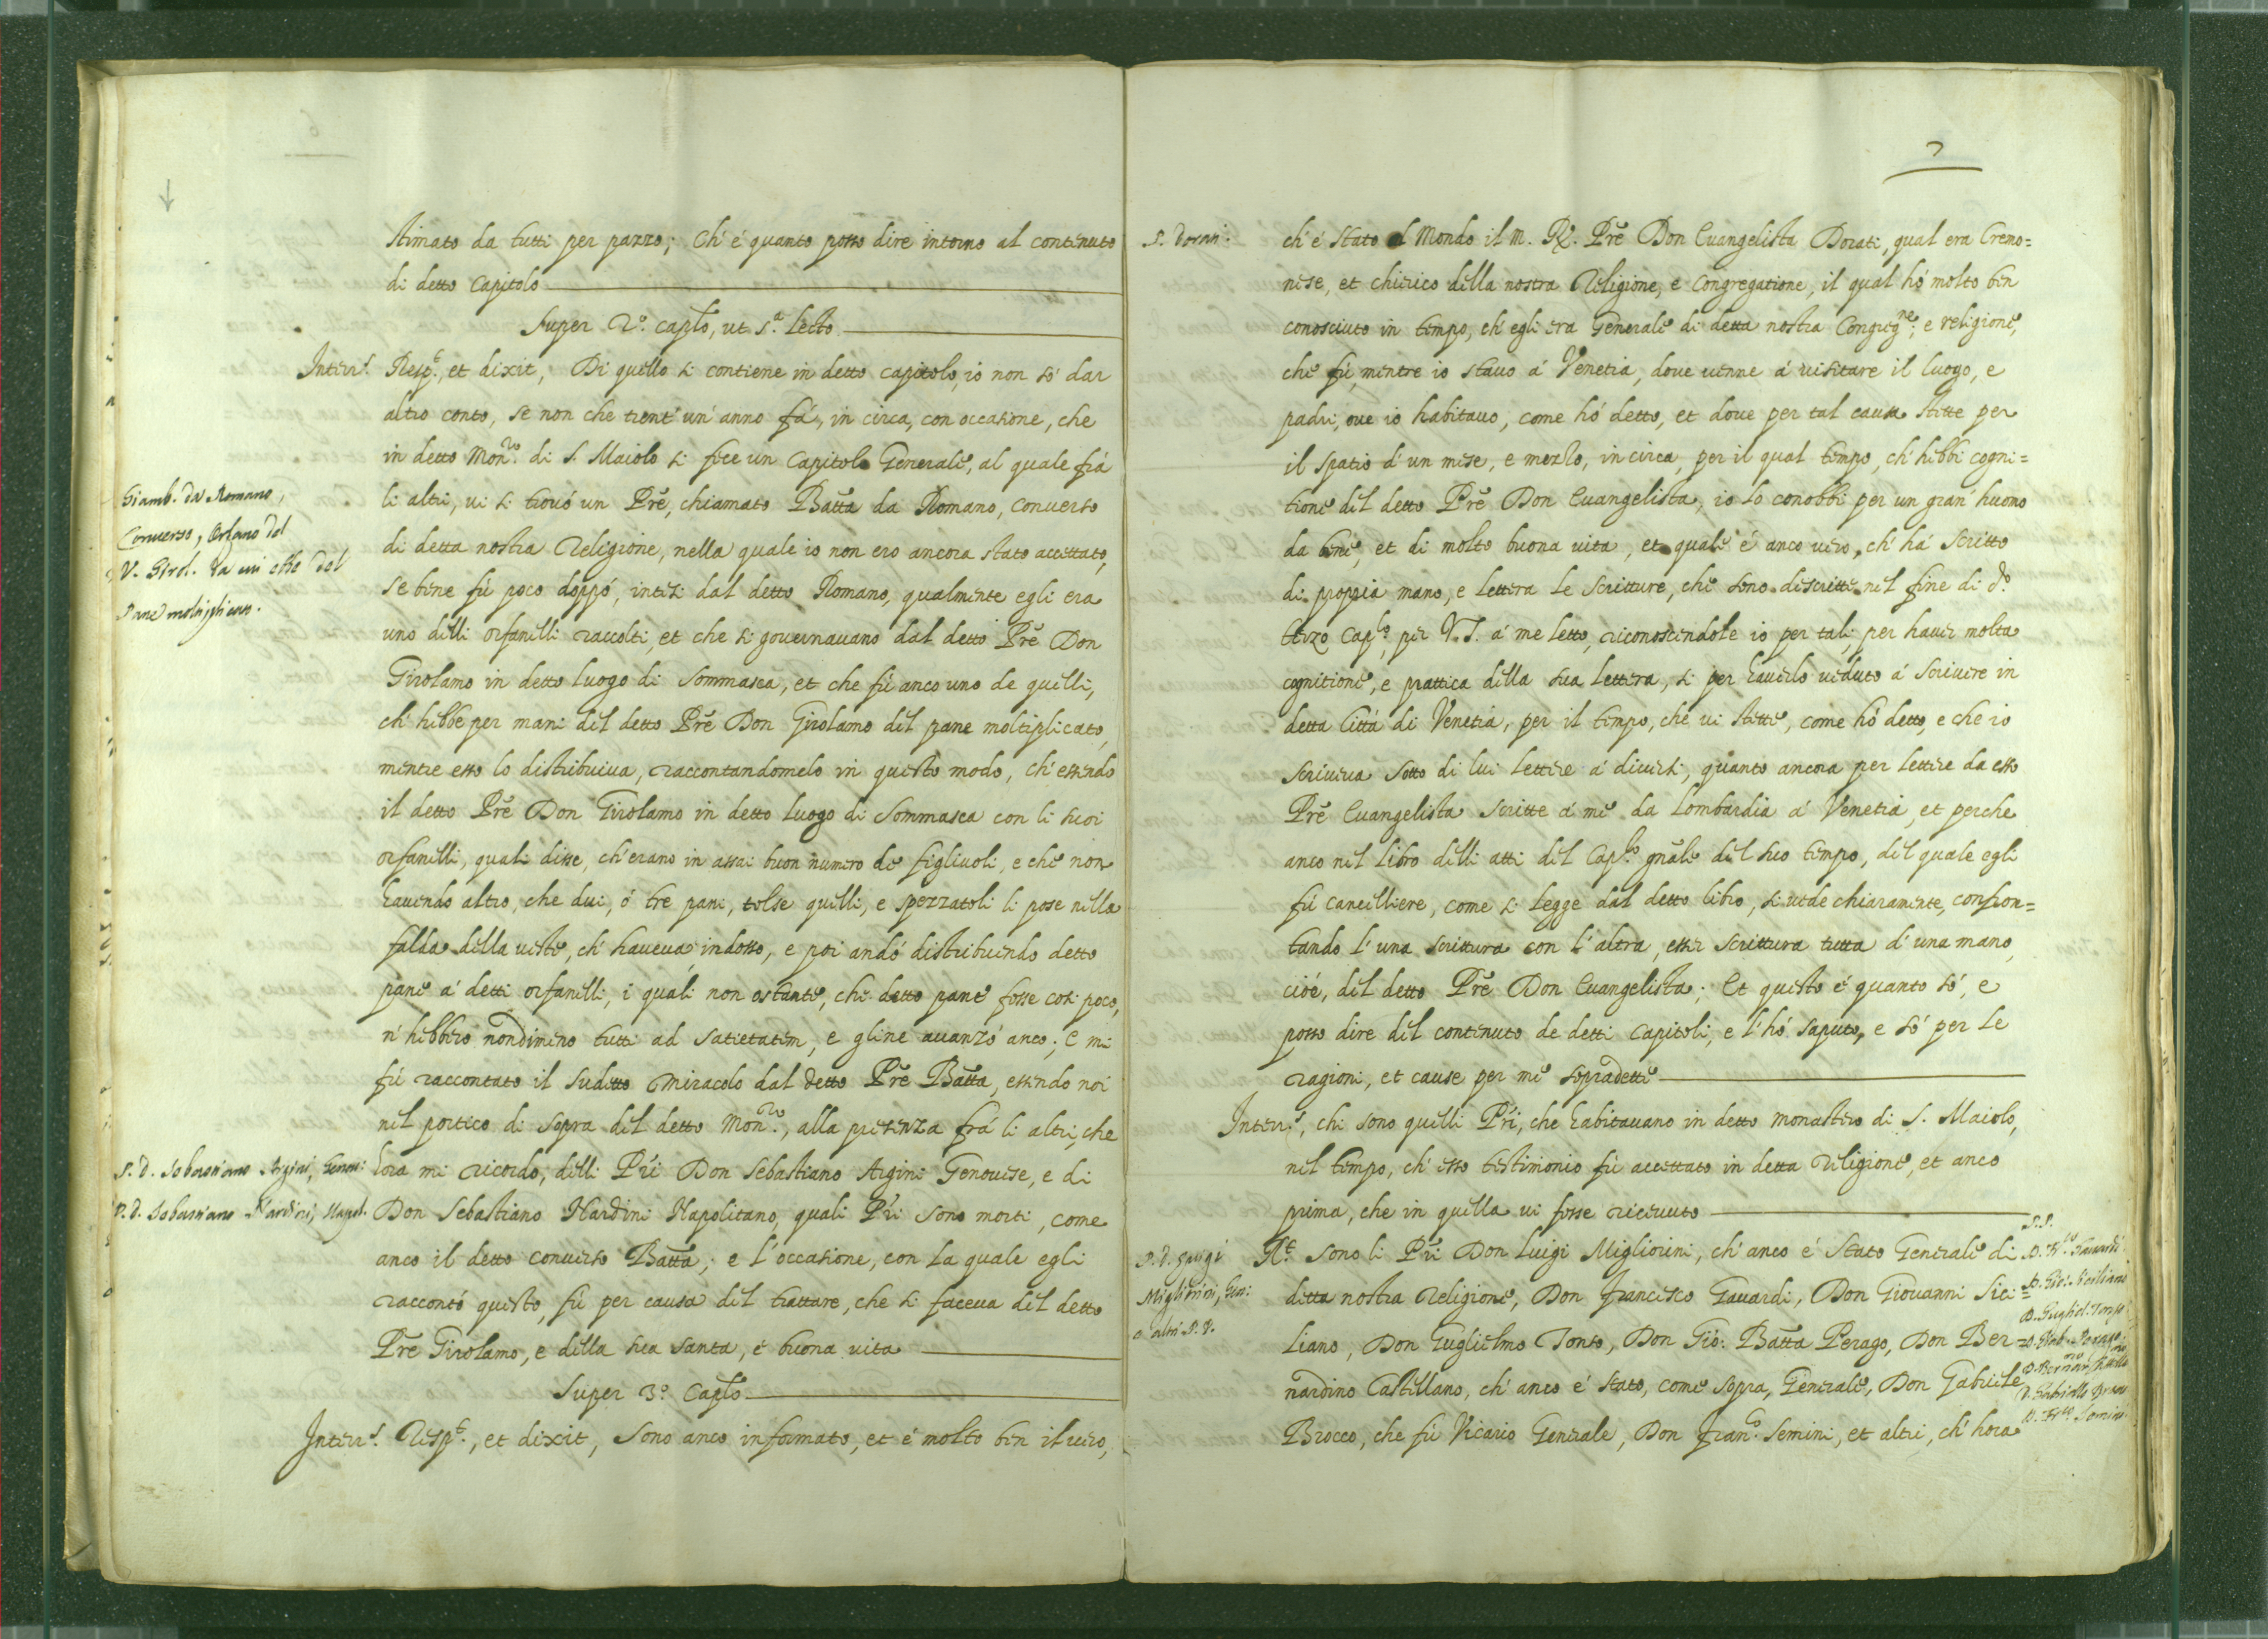 stimato da tutti per pazzo; Ch' é quanto posso dire intorno al contenuto
di detto Capitolo
Super 2.º caplo, ut s.ª lecto.
Interr.s Resp.t, et dixit, Di quello si contiene in detto capitolo, io non só dar
altro conto, se non che trent' un' anno fá, in circa, con occasione, che
in detto Mon.ro di S. Maiolo si fece un Capitolo Generale, al quale frá
li altri, ui si trouó un Prē, chiamato Batta da Romano, Conuerso
di detta nostra Religione, nella quale io non ero ancora stato accettato,
se bene fù poco doppó, intesi dal detto Romano, qualmente egli era
uno delli orfanelli raccolti, et che si gouernauano dal detto Prē Don
Girolamo in detto luogo di Sommasca, et che fù anco uno de quelli,
ch' hebbe per mani del detto Prē Don Girolamo del pane moltiplicato,
mentre esso lo distribuiua, raccontandomelo in questo modo, ch' essendo
il detto Prē Don Girolamo in detto luogo di Sommasca con li suoi
orfanelli, quali disse, ch' erano in assai buon numero de figliuoli, e che non
hauendo altro, che dui, ó tre pani, tolse quelli, e spezzatoli li pose nella
falda della ueste, ch' haueua indosso, e poi andó distribuendo detto
pane á detti orfanelli, i quali non ostante, che detto pane fosse cosi poco,
n' hebbero nondimeno tutti ad satietatem, e gline auanzó anco; E mi
fù raccontato il sudetto miracolo dal detto Prē Batta, essendo noi
nel portico di sopra del detto Mon.ro, alla presenza frá li altri, che
hora mi ricordo, delli Pri Don Sebastiano Argini Genouese, e di
Don Sebastiano Nardini Napolitano, quali Pri sono morti, come
anco il detto conuerso Batta; e l' occasione, con la quale egli
raccontó questo, fù per causa del trattare, che si faceua del detto
Prē Girolamo, e della sua santa, e buona uita
Super 3.º Caplo
Interr.s Resp.t, et dixit, Sono anco informato, et é molto ben il uero,
Giamb. da Romano,
Conuerso, Orfano del
V. Girol. da cui ebbe del
Pane moltiplicato.
P. D. Sebastiano Argini, Genou:
P. D. Sebastiano Nardini, Napol.
7
P. Dorati.
ch' é stato al Mondo il M. R. Prē Don Euangelista Dorati, qual era Cremo=
nese, et chierico della nostra Religione, e Congregatione, il qual hó molto ben
conosciuto in tempo, ch' egli era Generale di detta nostra Congreg.ne, e religione,
che fù, mentre io stauo á Venetia, doue uenne á uisitare il luogo, e
padri, oue io habitauo, come hó detto, et doue per tal causa stette per
il spatio d' un mese, e mezzo, in circa, per il qual tempo, ch' hebbi cogni=
tione del detto Prē Don Euangelista, io lo conobbi per un gran' huomo
da bene, et di molto buona uita, et quale é anco uero, ch' há scritto
di propria mano, e lettera le scritture, che sono descritte nel fine di d.º
terzo Cap.lo, per V. S. á me letto, riconoscendole io per tali, per hauer molta
cognitione, e prattica della sua lettera, si per hauerlo ueduto á scriuere in
detta Cittá di Venetia, per il tempo, che ui stette, come hó detto, e che io
scriueua sotto di lui lettere á diuersi, quanto ancora per lettere da esso
Prē Euangelista scritte á me da Lombardia á Venetia, et perche
anco nel libro delli atti del Cap.lo gnāle del suo tempo, del quale egli
fù cancelliere, come si legge dal detto libro, si uede chiaramente, confron=
tando l' una scrittura con l' altra, esser scrittura tutta d' una mano,
cioé, del detto Prē Don Euangelista; Et questo é quanto só, e
posso dire del continuto de detti Capitoli, e l' hó saputo, e só per le
ragioni, et cause per me sopradette
Interr.s, chi sono quelli Pri, che habitauano in detto monastero di S. Maiolo,
nel tempo, ch' esso testimonio fù accettato in detta religione, et anco
prima, che in quella ui fosse riceuuto
R.t Sono li Pri Don Luigi Migliorini, ch' anco é stato Generale di
detta nostra Religione, Don Francesco Gauardi, Don Giouanni Sici=
liano, Don Guglielmo Tonso, Don Gió: Batta Perago, Don Ber=
nardino Castellano, ch' anco é stato, come sopra, Generale, Don Gabriele
Brocco, che fù Vicario Generale, Don Fran.co Semini, et altri, ch' hora
P. D. Luigi
Migliorini, Gen:
e altri P. P.
P. P.
D. Fr.co Gauardi
D. Gio: Siciliano
D. Gugliel. Tonso
D. Gabriello Brocco
D. Fr.co Semini